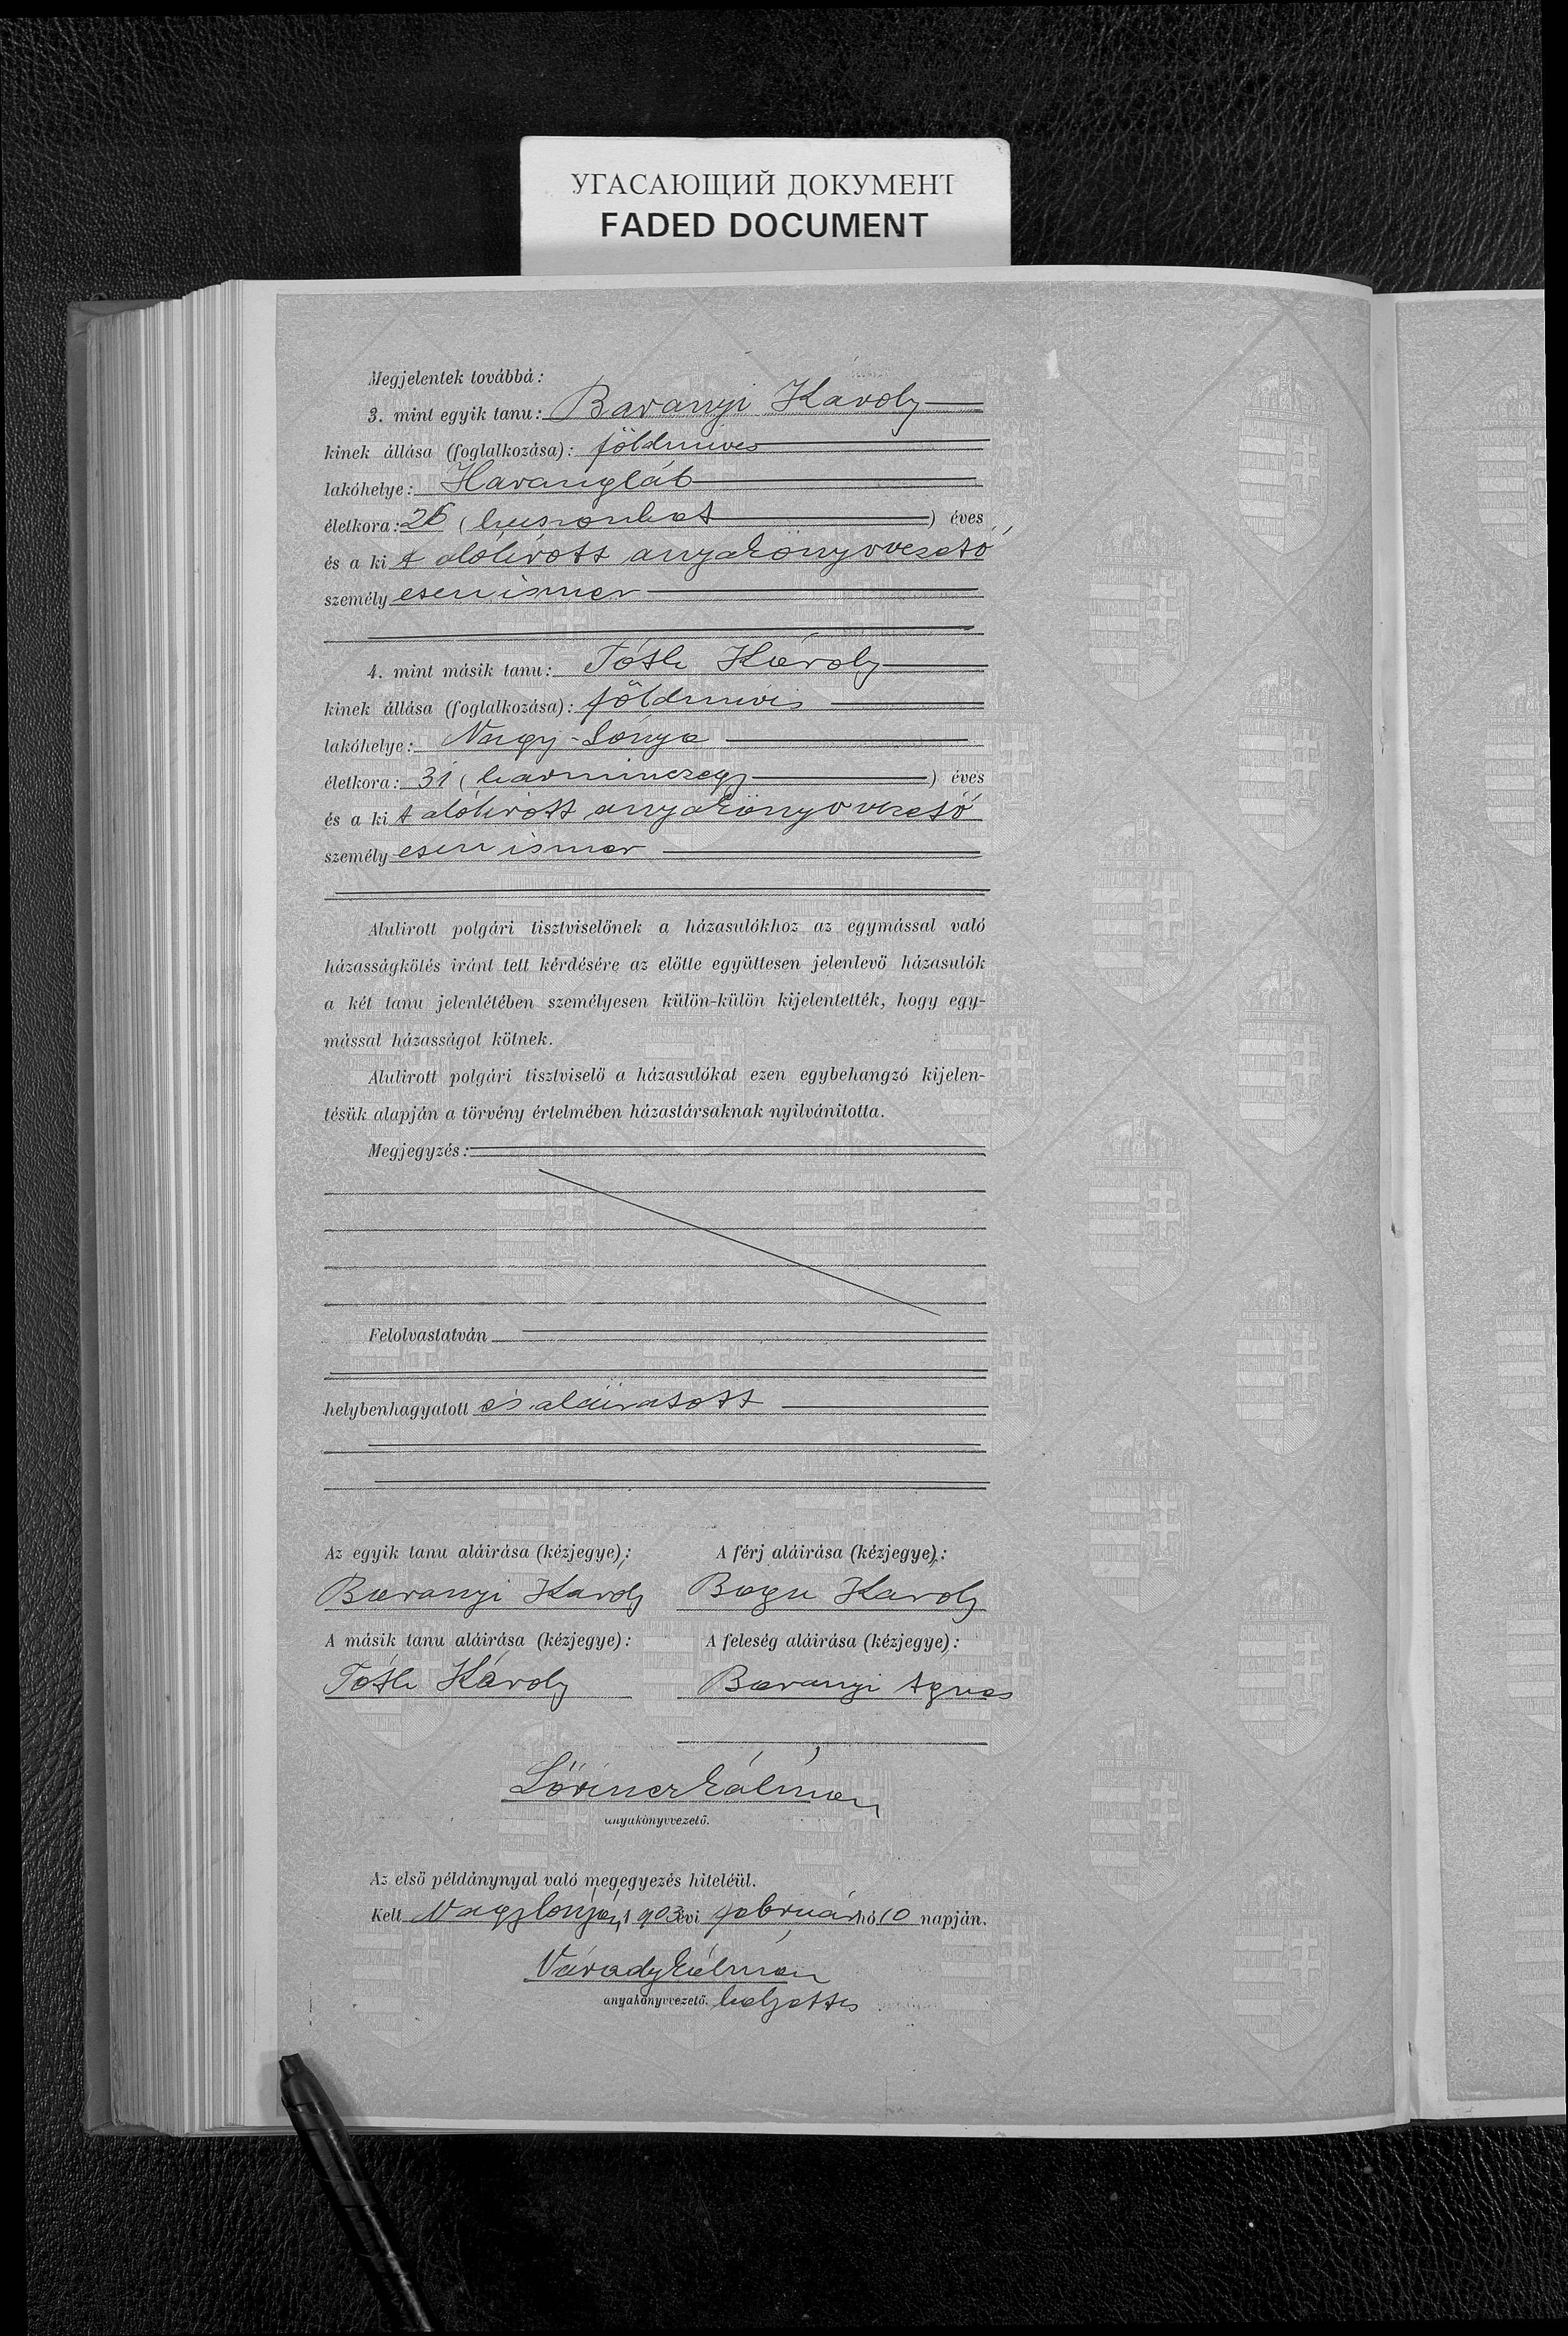 УГАСАЮЩИЙ ДОКУМЕНТ
FADED DOCUMENT
Megjelentek továbbá:
3. mint egyik tanu: Baranyi Károly
kinek állása (foglalkozása): földmives
lakóhelye: Harangláb
életkora: 26 (huszonhat) éves
és a ki t alólirott anyakönyvvezető
személy esen ismer
4. mint másik tanu: Tóth Károly
kinek állása (foglalkozása): földmivis
lakóhelye: Nagy-Lónya
életkora: 31 (harminczegy) éves
és a ki t alólirott anyakönyvvezető
személy esen ismer
Alulirott polgári tisztviselőnek a házasulókhoz az egymással való
házasságkötés iránt tett kérdésére az előtte együttesen jelenlevő házasulók
a két tanu jelenlétében személyesen külön-külön kijelentették, hogy egy-
mással házasságot kötnek.
Alulirott polgári tisztviselő a házasulókat ezen egybehangzó kijelen-
tésük alapján a törvény értelmében házastársaknak nyilvánitotta.
Megjegyzés:
Felolvastatván
helybenhagyatott és aláiratott
Az egyik tanu aláirása (kézjegye): A férj aláirása (kézjegye):
Baranyi Karoly Bagu Karoly
A másik tanu aláirása (kézjegye): A feleség aláirása (kézjegye):
Tóth Károly Baranyi Agnes
Lőrincz Kálmán
anyakönyvvezető.
Az első példánynyal való megegyezés hiteléül.
Kelt Nagylónyán, 1903 évi február hó 10 napján.
Várady Kálmán
anyakönyvvezető. helyettes